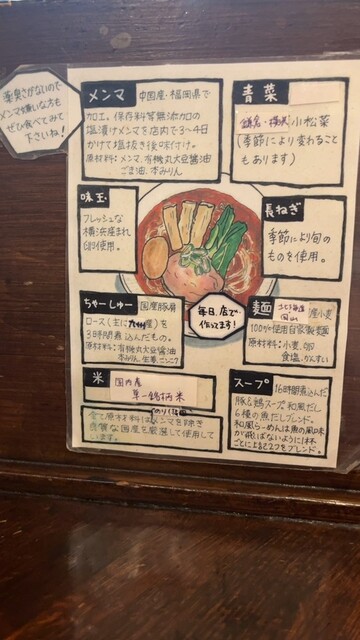 薬臭さがないので
メンマ嫌いな方も
ぜひ食べてみて
下さいね!
メンマ
中国産・福岡県で
加工。保存料等無添加の
塩漬けメンマを店内で3~4日
かけて塩抜き後味付け。
原材料:メンマ、有機丸大豆醤油
ごま油、本みりん
青菜
鎌倉・横浜 小松菜
(季節により変わること
もあります)
味玉
フレッシュな
横浜産まれ
卵使用。
長ねぎ
季節により旬の
ものを使用。
ちゃーしゅー
国産豚肩
ロース(主に九州産)を
3時間煮込んだもの。
原材料:有機丸大豆醤油
本みりん、生姜、ニンニク
毎日、店で
作ってます!
麺
北海道
産小麦
100%使用自家製麺
原材料:小麦、卵
食塩、かんすい
米
国内産
単一銘柄米
のり
全て原材料はメンマを除き
良質な国産を厳選して使用して
います。
スープ
16時間煮込んだ
豚&鶏スープ 和風だし
6種の魚だしブレンド。
和風らーめんは魚の風味
が飛ばないように1杯
ごとに上記2つをブレンド。